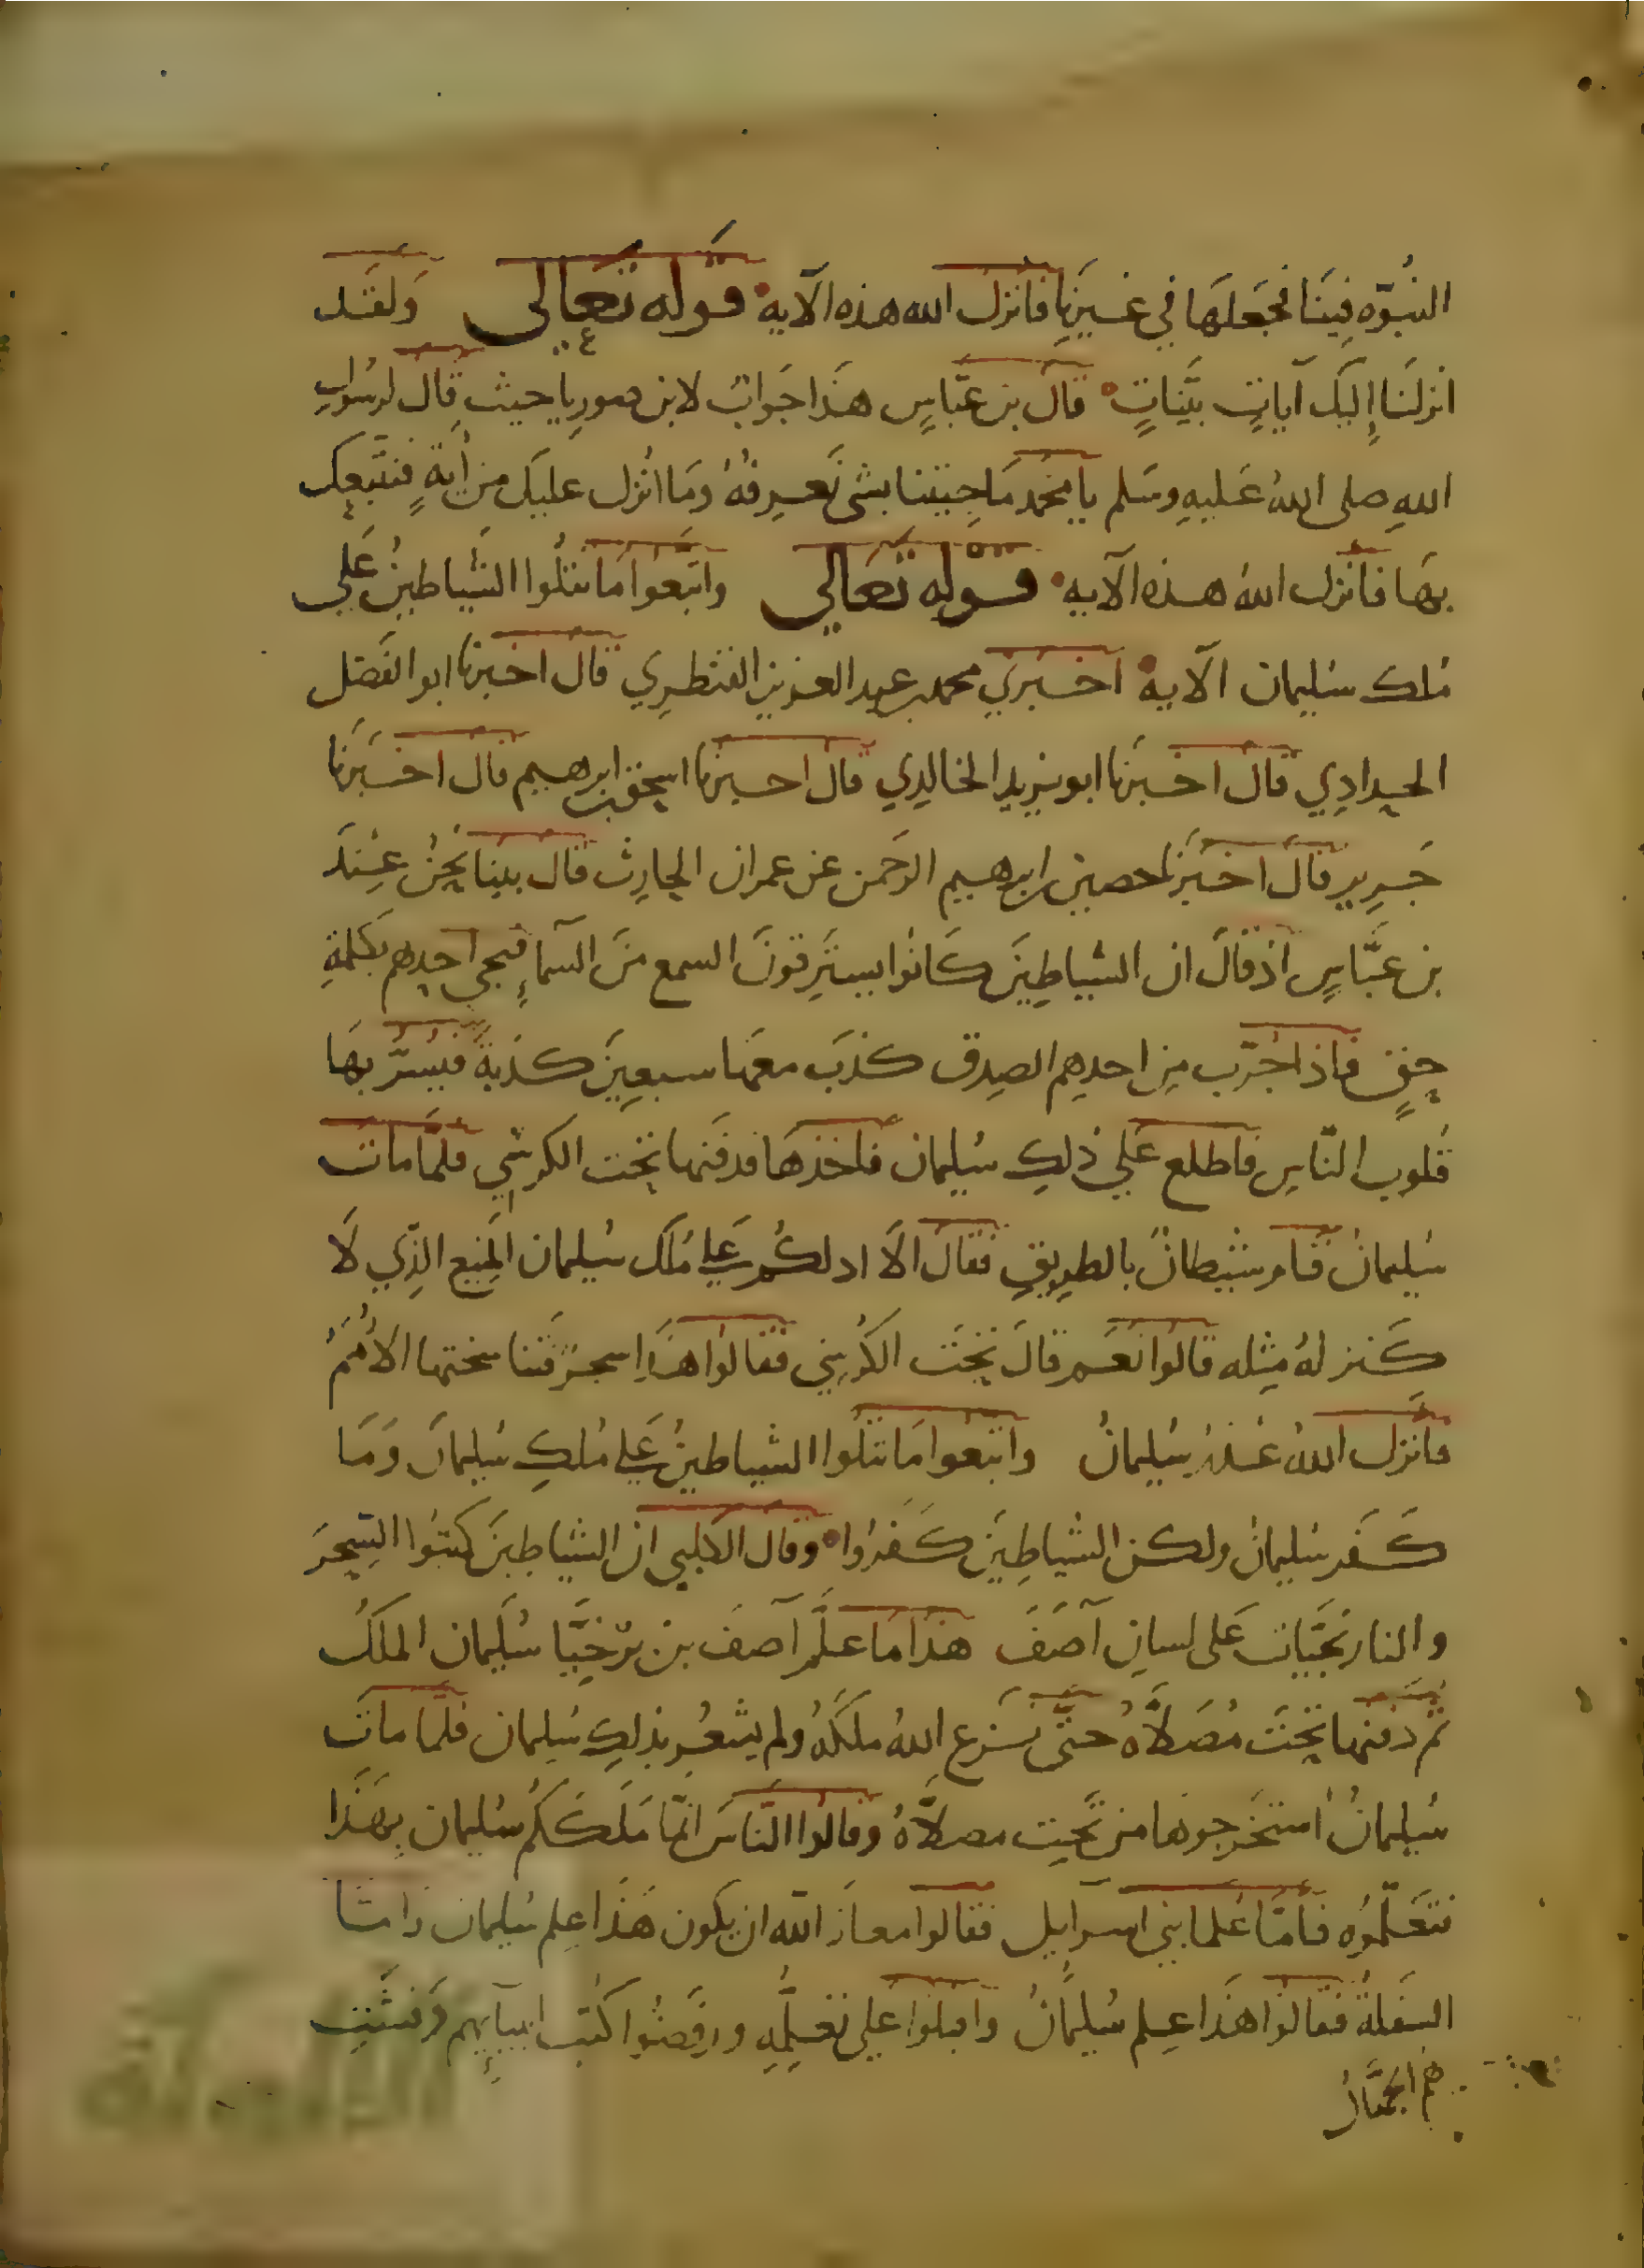 النبوّه فِينَا فجَعَلهَا في غَيرِنا فانزل الله هذه الآيه قوله تعالى وَلقَد
انزلنَا إليَك آياتٍ بيَّناتٍ قال بن عبَّاسٍ هذَا جَوابٌ لابن صورِيا حيث قال لرسُولِ
اللهِ صلى اللهُ عَليهِ وسَلم يا محمد مَا جِيتنا بشئ نَعرِفُهُ ومَا انُزل عليكَ مِن أيةٍ فنتّبعك
بهَا فانزل اللهُ هذه الآيه قوله تعَالي واتبعوُا مَا تتلُوا الشياطينُ عَلي
مُلك سُليمان الآيه اخبرني محمد بن عبد العزيز القنطرِي قال اخبرنا ابو الفَضل
الحدادِي قال اخبرَنا ابو يزيد الخالدِي قال اخبرنا اسحق بن ابرهيم قال اخبَرَنا
جَرِير قالَ اخبَرنا حصين بن ابرهيم الرَحمن عن عمران الحارِث قال بينا نَحنُ عِندَ
بن عَبَّاسٍ اذ قالَ ان الشياطِينَ كَانُوا يسترِقونَ السمع منَ السَّماءِ فيجي احدهم بكَلمةِ
حقٍ فاذا جُرّب مِن احدِهم الصِدق كذبَ معَها سبعِينَ كذبةً فيُسَرّ بهَا
قلوب النّاسِ فاطلع عَلي ذلِك سُليمان فاخذهَا فدفَنها تحت الكرسِي فلمّا ماتَ
سُليمانُ قام شيطانٌ بالطرِيقِ فقال الاَ ادلكُم عَلي مُلك سُليمان المنِيع الذِي لاَ
كَنز لهُ مِثله قالوا نعَم قالَ تحَت الكُرسِي فقالوُا هذَا سحرٌ فتناسختها الأُمَمُ
فانزل اللهُ عُذرُ سُليمانُ واتبعوا مَا تتلُوا الشياطينُ عَلي مُلكِ سُليمانَ وَمَا
كَفَر سُليمانُ ولكن الشياطِينَ كَفرُوا وقال الكلبي ان الشياطِينَ كتبُوا السِحرَ
والنارنجَيات عَلى لسانِ آصَفَ هذا مَا علَّم آصَفَ بن برخيَّا سُليَمان الملكُ
ثم دَفنهَا تحَتَ مُصَلاَّهُ حتّى نزع اللهُ ملكَهُ ولم يشعُر بذلِك سُليمان فلمّا ماتَ
سُليمانُ استخَرجوُها من تَحتِ مصلاَّهُ وقالوُا النّاسَ انّما مَلَكَكُم سُليمان بِهَذَا
فتعَلّموُه فامَّا عُلما بني اسرآيل فقالوا معاذَ الله ان يكون هَذَا عِلم سُليمان وَامّا
السَفلةُ فقالوُا هَذا عِلم سُليَمَانُ واقبلوُا عَلي تعَلّمِهِ ورفَضوُا كُتب انبيآيِهم وَفشَتِ
هُم الجُهَّالُ